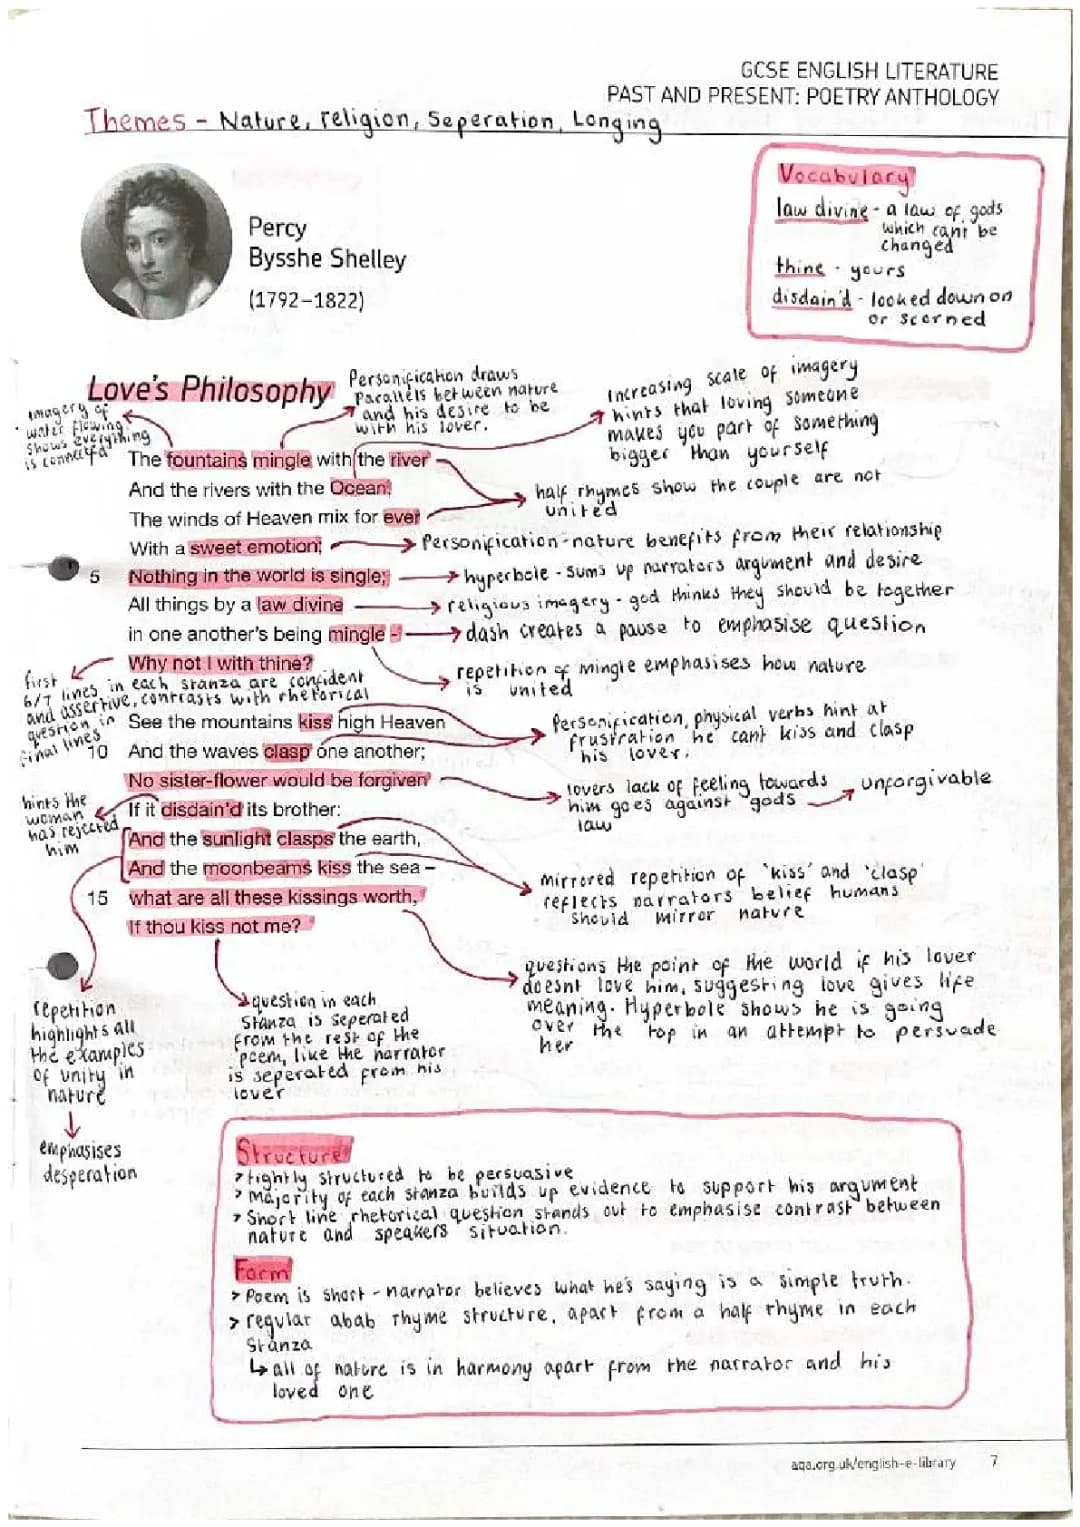 GCSE ENGLISH LITERATURE
PAST AND PRESENT: POETRY ANTHOLOGY
Themes - Nature, religion, Seperation, Longing
Vocabulary
law divine - a law of gods
which cant be
changed
thine - yours
disdain'd - looked down on
or scorned
Percy
Bysshe Shelley
(1792–1822)
Love's Philosophy
imagery of
water flowing
shows everything
is connected
Personification draws
parallels between nature
and his desire to be
with his lover.
increasing scale of imagery
hints that loving someone
makes you part of something
bigger than yourself
The fountains mingle with the river
And the rivers with the Ocean,
The winds of Heaven mix for ever
half rhymes show the couple are not
united
With a sweet emotion;
Personification - nature benefits from their relationship
5 Nothing in the world is single;
hyperbole - sums up narrators argument and desire
All things by a law divine
religious imagery - god thinks they should be together
in one another's being mingle -
dash creates a pause to emphasise question
Why not I with thine?
repetition of mingle emphasises how nature
is united
first
6/7 lines in each stanza are confident
and assertive, contrasts with rhetorical
question in
final lines
See the mountains kiss high Heaven
10 And the waves clasp one another;
Personification, physical verbs hint at
frustration he cant kiss and clasp
his lover.
No sister-flower would be forgiven
If it disdain'd its brother:
lovers lack of feeling towards
him goes against gods
law
unforgivable
hints the
woman
has rejected
him
And the sunlight clasps the earth,
And the moonbeams kiss the sea –
15 what are all these kissings worth,
If thou kiss not me?
mirrored repetition of 'kiss' and 'clasp'
reflects narrators belief humans
should mirror nature
questions the point of the world if his lover
doesnt love him, suggesting love gives life
meaning. Hyperbole shows he is going
over the top in an attempt to persuade
her
repetition
highlights all
the examples
of unity in
nature
emphasises
desperation
question in each
stanza is seperated
from the rest of the
poem, like the narrator
is seperated from his
lover
Structure
> tightly structured to be persuasive
> Majority of each stanza builds up evidence to support his argument
> Short line rhetorical question stands out to emphasise contrast between
nature and speakers situation.
Form
> Poem is short - narrator believes what he's saying is a simple truth.
> regular abab rhyme structure, apart from a half rhyme in each
stanza
↳ all of nature is in harmony apart from the narrator and his
loved one
aqa.org.uk/english-e-library 7